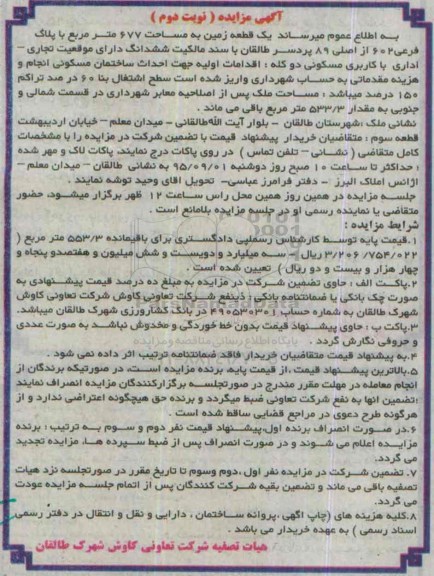 آگهی مزایده ( نوبت دوم )
به اطلاع عموم میرساند یک قطعه زمین به مساحت ۶۷۷ متر مربع با پلاک
فرعی۶۰۲ از اصلی ۸۹ پردسر طالقان با سند مالکیت ششدانگ دارای موقعیت تجاری –
اداری با کاربری مسکونی دو کله ؛ اقدامات اولیه جهت احداث ساختمان مسکونی انجام و
هزینه مقدماتی به حساب شهرداری واریز شده است سطح اشتغال بنا ۶۰ در صد تراکم
۱۵۰ درصد میباشد ؛ مساحت ملک پس از اصلاحیه معابر شهرداری در قسمت شمالی و
جنوبی به مقدار ۵۳۳/۳ متر مربع باقی می ماند .
نشانی ملک :شهرستان طالقان - بلوار آیت الله طالقانی – میدان معلم – خیابان اردیبهشت
قطعه سوم ؛ متقاضیان خریدار پیشنهاد قیمت با تضمین شرکت در مزایده را با مشخصات
کامل متقاضی ( نشانی – تلفن تماس ) در روی پاکات درج نمایند، پاکات لاک و مهر شده
؛ حداکثر تا ساعت ۱۰ صبح روز دوشنبه ۹۵/۰۹/۰۱ به نشانی طالقان – میدان معلم –
اژانس املاک البرز - دفتر فرامرز عباسی– تحویل اقای وحید توشه نمایند .
جلسه مزایده در همین روز همین محل راس ساعت ۱۲ ظهر برگزار میشود، حضور
متقاضی یا نماینده رسمی او در جلسه مزایده بلامانع است .
شرایط مزایده :
۱.قیمت پایه توسط کارشناس رسمی دادگستری برای باقیمانده ۵۵۳/۳ متر مربع (
۳/۲۰۶/۷۵۴/۰۲۲ ریال – سه میلیارد و دویست و شش میلیون و هفتصدو پنجاه و
چهار هزار و بیست و دو ریال ) تعیین شده است .
۲.پاکت الف : حاوی تضمین شرکت در مزایده به مبلغ ده درصد قیمت پیشنهادی به
صورت چک بانکی یا ضمانتنامه بانکی : ذینفع شرکت تعاونی کاوش شرکت تعاونی کاوش
شهرک طالقان به شماره حساب ۴۹۰۵۳۰۳۰۱ در بانک کشاورزی شهرک طالقان میباشد.
۳.پاکت ب : حاوی پیشنهاد قیمت بدون خط خوردگی و مخدوش نباشد به صورت عددی
و حروفی نگارش گردد .
۴.به پیشنهاد قیمت متقاضیان خریدار فاقد ضمانتنامه ترتیب اثر داده نمی شود .
۵.بالاترین پیشنهاد قیمت ،از قیمت پایه، برنده مزایده است، در صورتیکه برندگان از
انجام معامله در مهلت مقرر مندرج در صورتجلسه برگزارکنندگان مزایده انصراف نمایند
؛تضمین انها به نفع شرکت تعاونی ضبط میگردد و برنده حق هیچگونه اعتراضی ندارد و از
هرگونه طرح دعوی در مراجع قضایی ساقط شده است .
۶.در صورت انصراف برنده اول،پیشنهاد قیمت نفر دوم و سوم به ترتیب ؛ برنده
مزایده اعلام می شوند و در صورت انصراف پس از ضبط سپرده ها، مزایده تجدید
می گردد.
۷. تضمین شرکت در مزایده نفر اول ،دوم وسوم تا تاریخ مقرر در صورتجلسه نزد هیات
تصفیه باقی می ماند و تضمین بقیه شرکت کنندگان پس از اتمام جلسه مزایده عودت
می گردد.
۸.کلیه هزینه های (چاپ اگهی ،پروانه ساختمان ، دارایی و نقل و انتقال در دفتر رسمی
اسناد رسمی ) به عهده خریدار می باشد .
هیات تصفیه شرکت تعاونی کاوش شهرک طالقان